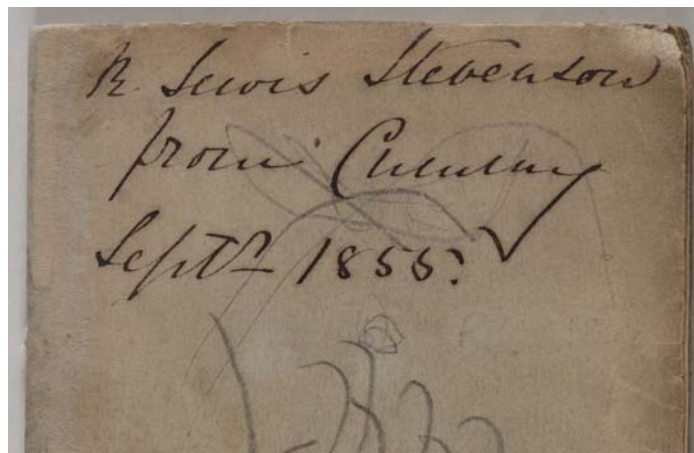 R. Lewis Stevenson
from Cummy
Septr 1855.